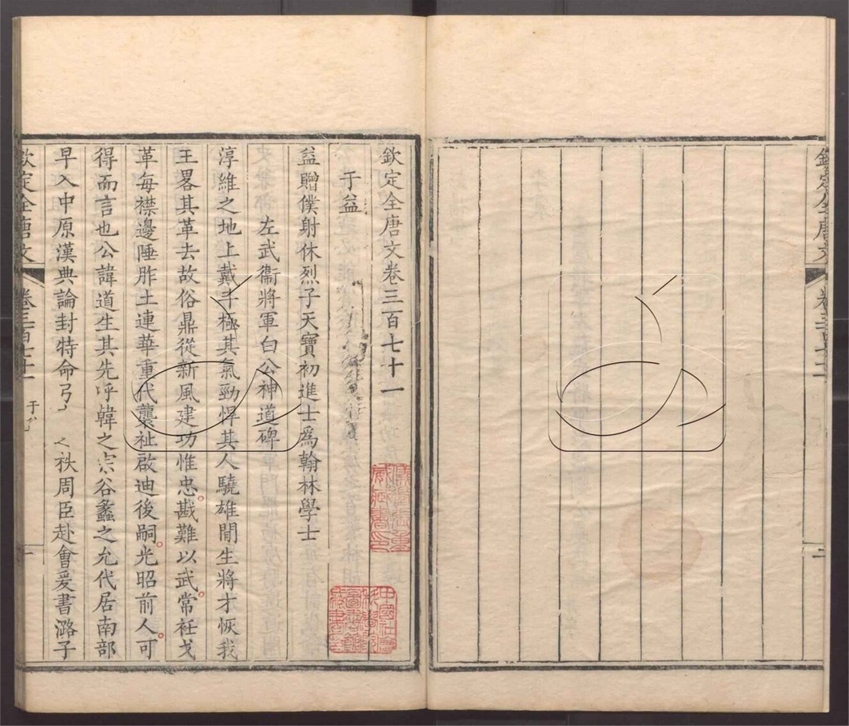 欽定全唐文卷三百七十一
于益
益贈僕射休烈子天寶初進士爲翰林學士
左武衞將軍白公神道碑
淳維之地上戴斗極其氣勁悍其人驍雄閒生將才恢我
王畧其革去故俗鼎從新風建功惟忠戡難以武常衽戈
革每襟邊陲胙土連華重代襲祉啟迪後嗣光昭前人可
得而言也公諱道生其先呼韓之宗谷蠡之允代居南部
早入中原漢典論封特命弓 秩周臣赴會爰書潞子
欽定全唐文 卷三百七十一 于益 一